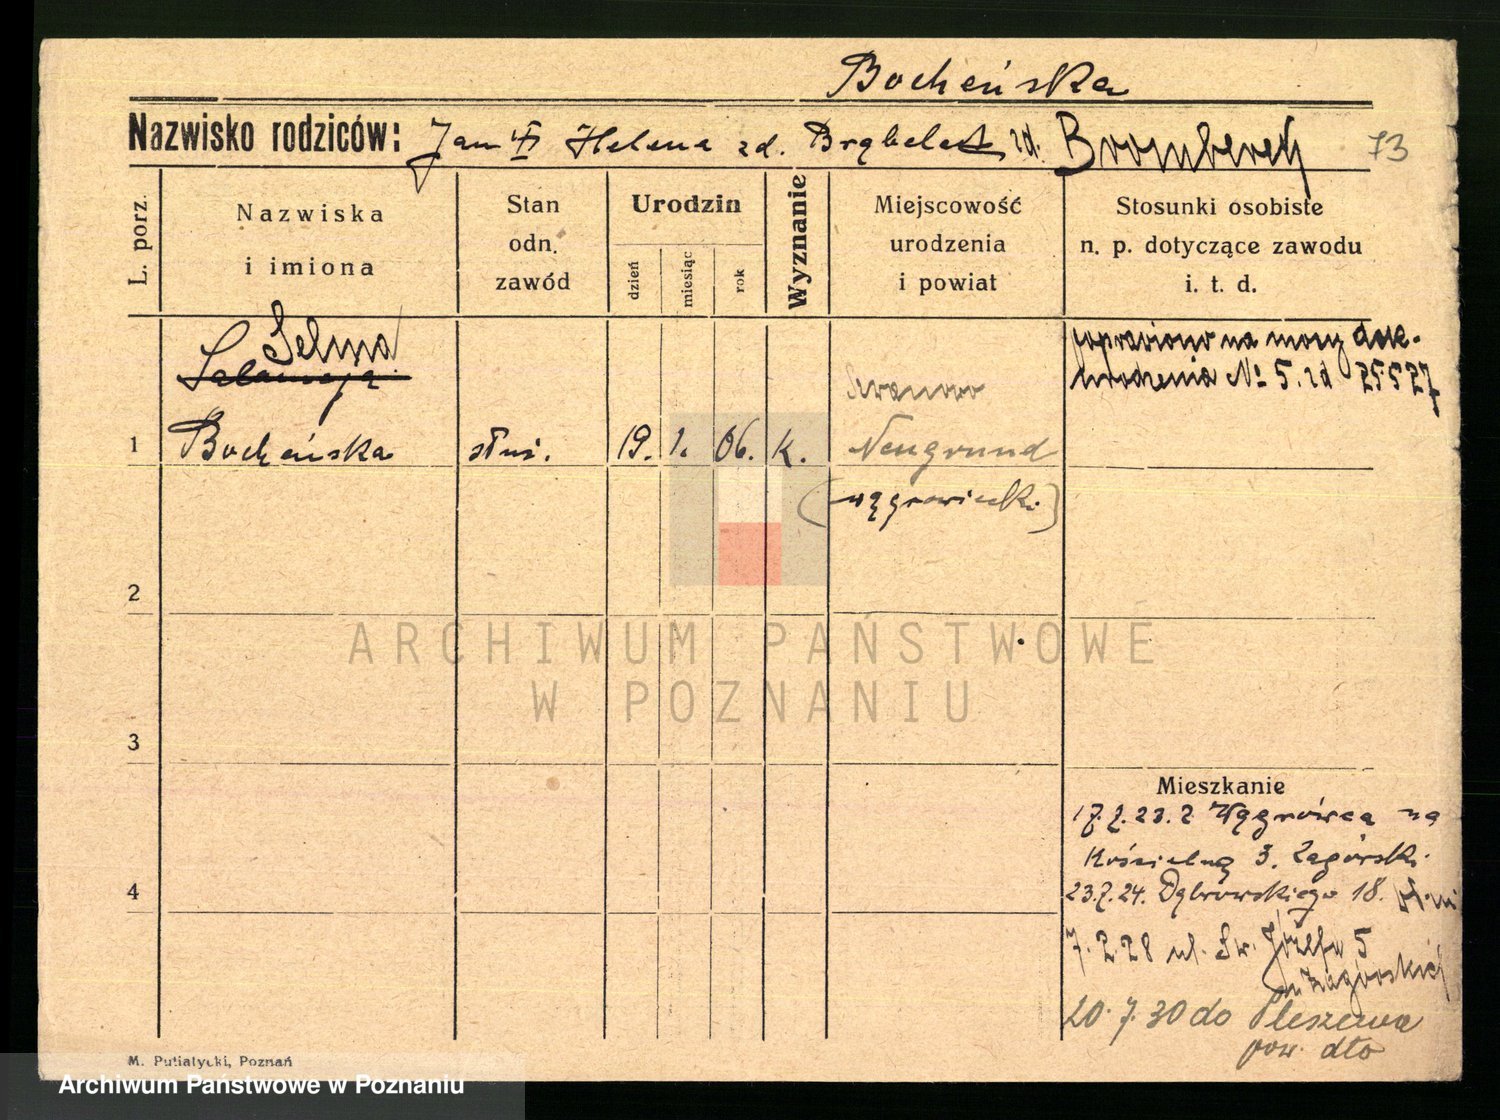 Bocheńska
Nazwisko rodziców: Jan i Helena zd. Brąbelest zd. Bromberek 73
L. porz.
Nazwiska i imiona
Stan odn. zawód
Urodzin
dzień
miesiąc
rok
Wyznanie
Miejscowość urodzenia i powiat
Stosunki osobiste n. p. dotyczące zawodu i. t. d.
Selma
Salomeja
1 Bocheńska służ. 19. 1. 06. k. Neugrund
(wągrowiecki)
poprawiono na mocy dok.
urodzenia № 5. zd 25 5 27
2
3
4
ARCHIWUM PAŃSTWOWE
W POZNANIU
Mieszkanie
17.2.23. z Wągrówca na
Kościelną 3. Zagórski.
23.7.24. Dąbrowskiego 18.
7.2.28 ul. Św. Józefa 5
u Zagórskiej
20.7.30 do Pleszewa
pow. dto
M. Putiatycki, Poznań
Archiwum Państwowe w Poznaniu